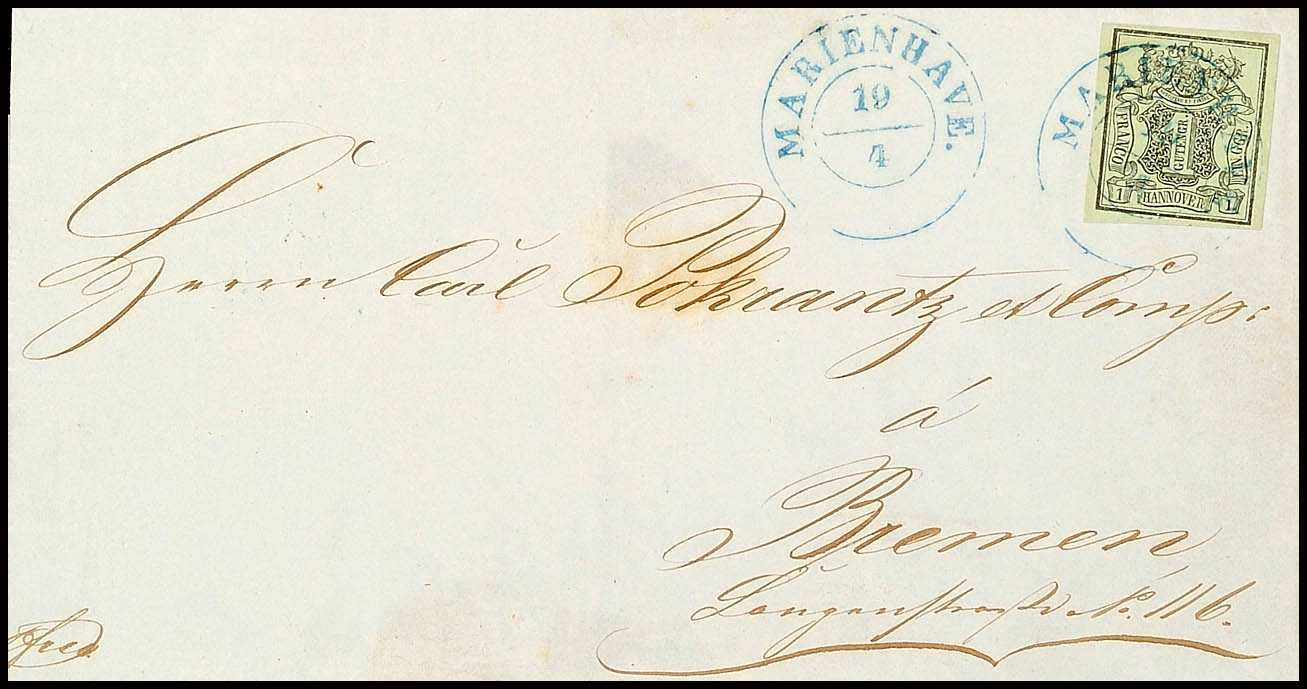 MARIENHAVE.
19
4
MARIE
FRANCO
1
GUTENGR.
EIN GGR.
1 HANNOVER 1
Herrn Carl Pokrantz et Comp:
á
Bremen,
Langenstraße No. 116.